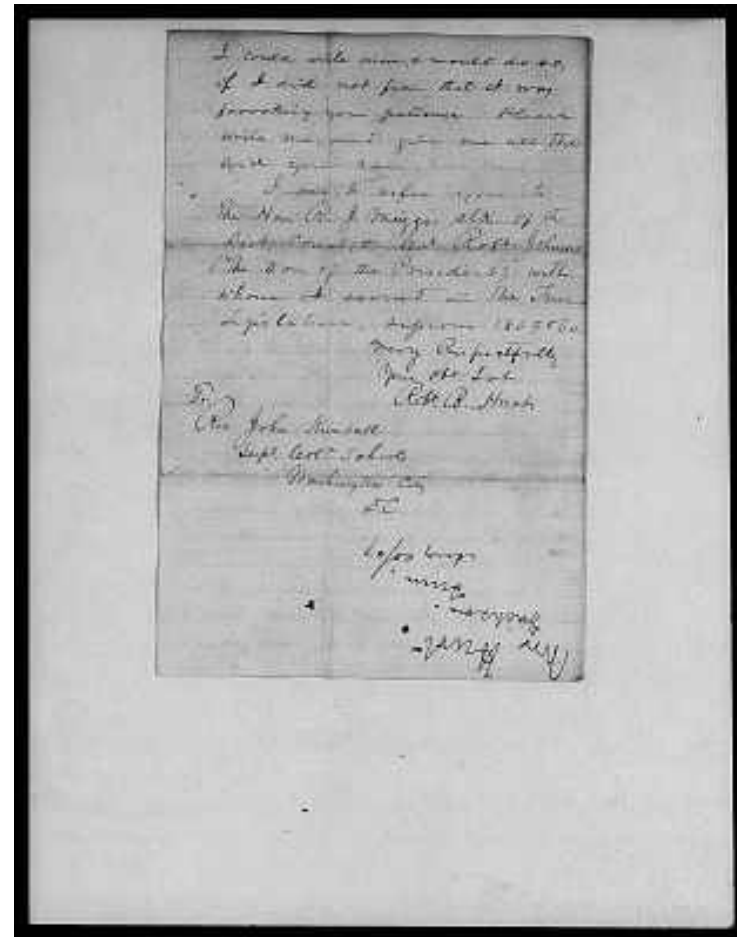 I could write more, & would do so,
if I did not fear that it was
provoking your patience. Please
write me, and give me all the
aid you can
I beg to refer you to
The Hon R. J. Meigs Clk of the
Dist Court, & Col Robt Johnson
(The Son of the President) with
whom I served in the Tenn
Legislature, sessions 1859 & 60
Very Respectfully
Your Obt Svt
Robt B.
To
Rev John Kimball
Supt Cold Schools
Washington City
DC
Mr
Jackson
Tenn